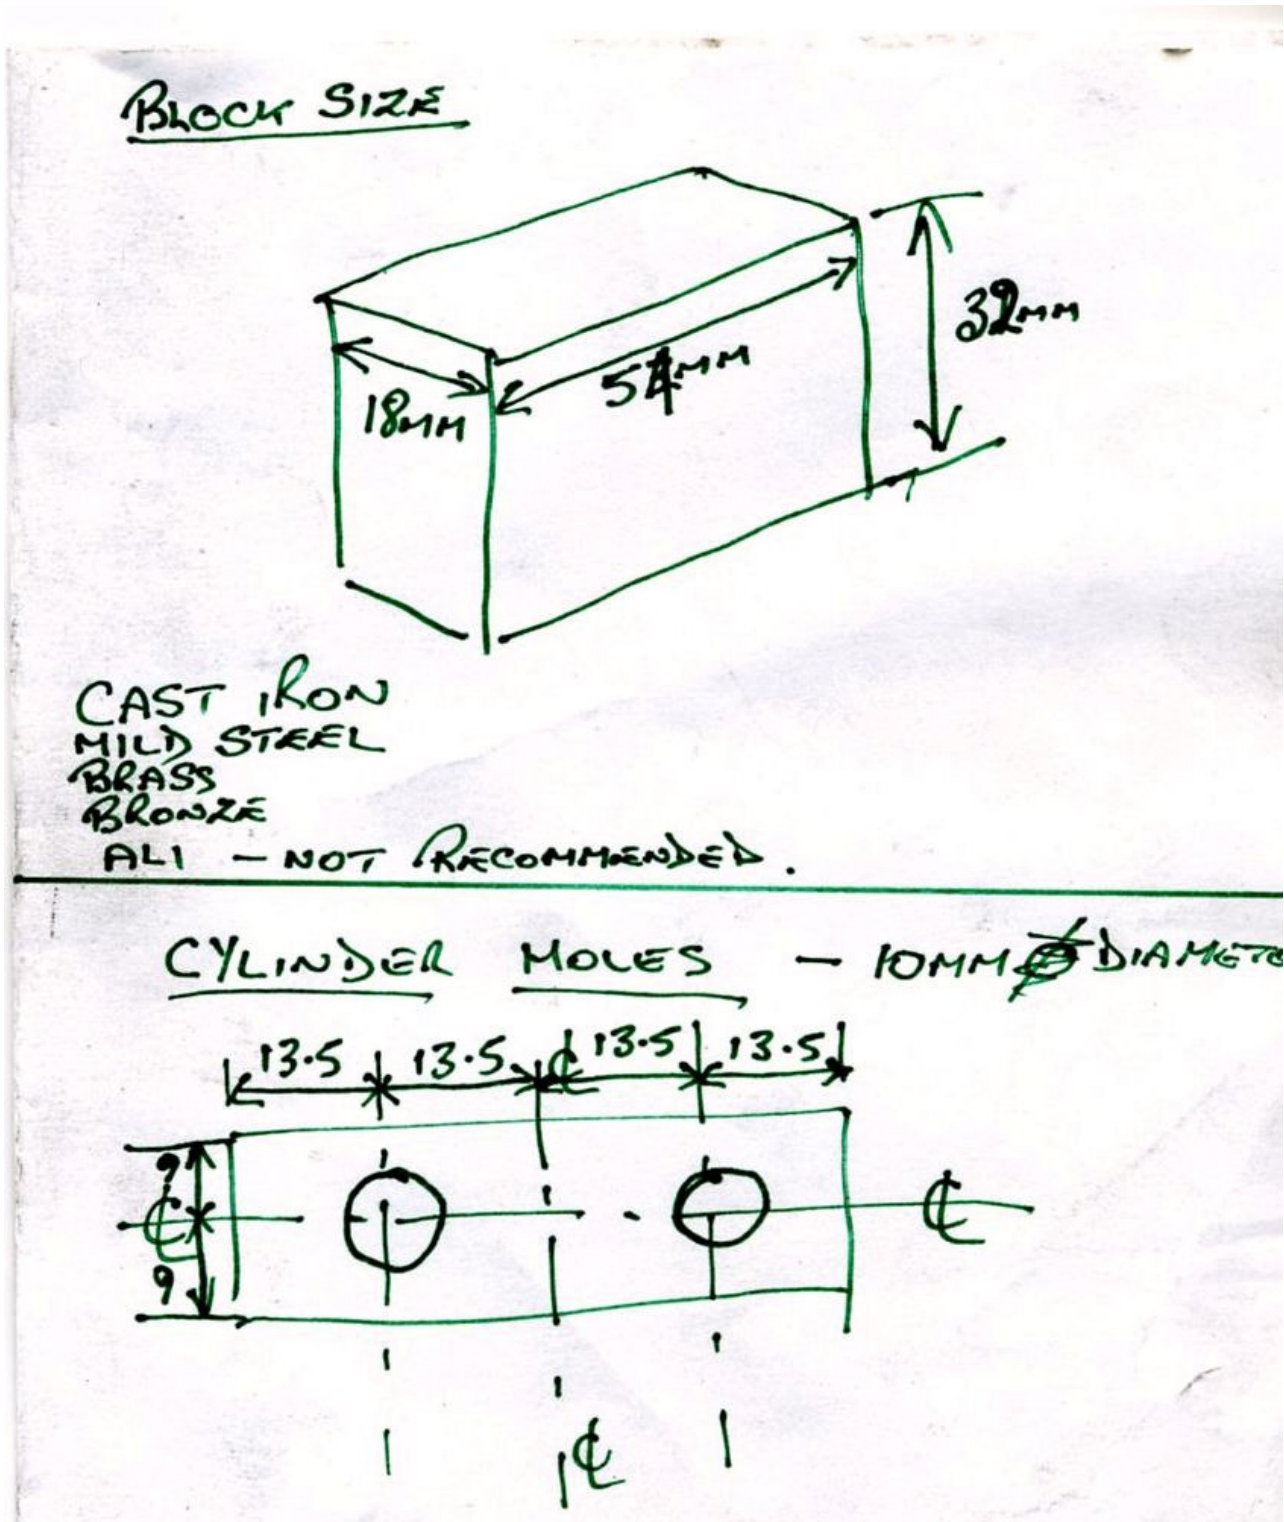 BLOCK SIZE
32MM
54MM
18MM
CAST IRON
MILD STEEL
BRASS
BRONZE
ALI - NOT RECOMMENDED.
CYLINDER HOLES - 10MM DIAMETE
13.5 13.5 ℄ 13.5 13.5
9
℄ ℄
9
℄